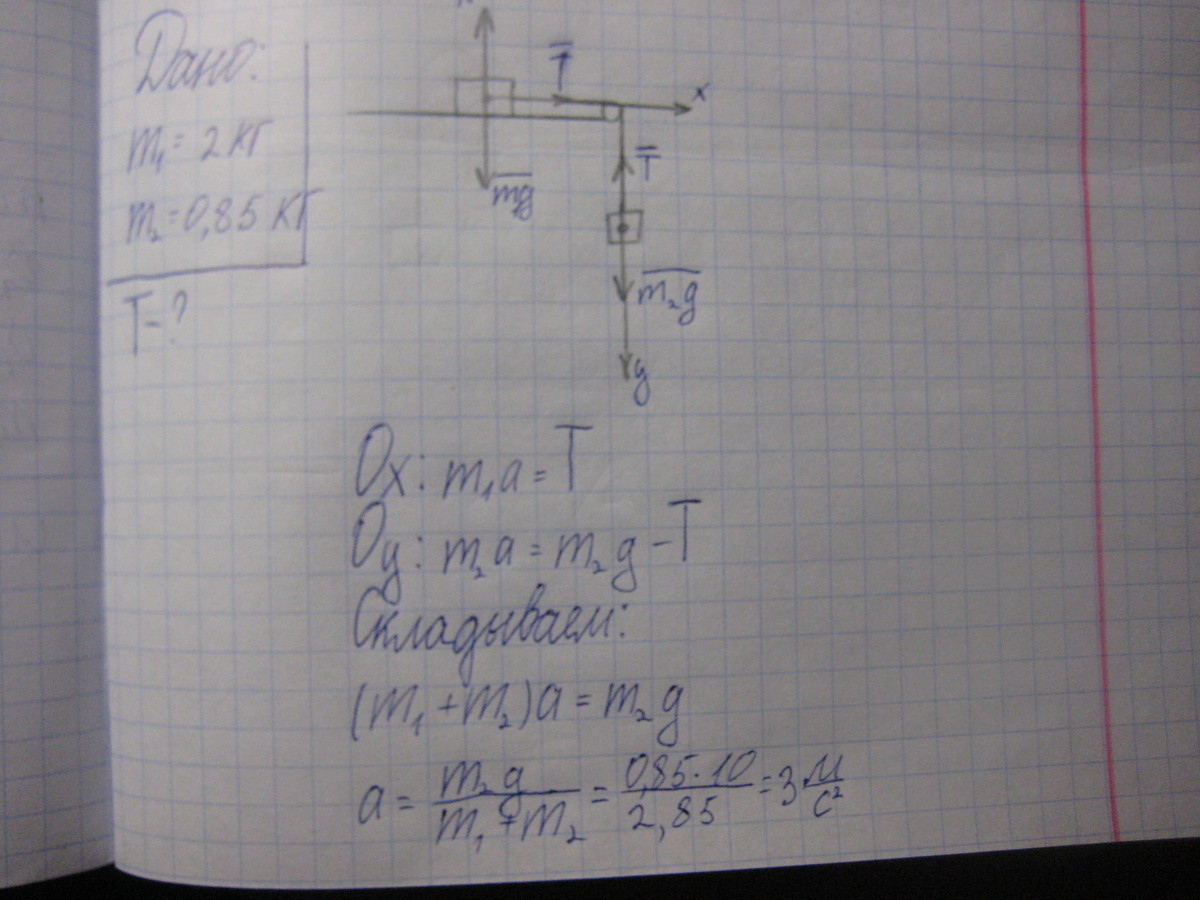 Дано:
m₁ = 2 кг
m₂ = 0,85 кг
T - ?
T
x
mg
T
m₂g
y
Ox: m₁a = T
Oy: m₂a = m₂g - T
Складываем:
(m₁ + m₂)a = m₂g
a = m₂g / m₁ + m₂ = 0,85·10 / 2,85 = 3 м/с²